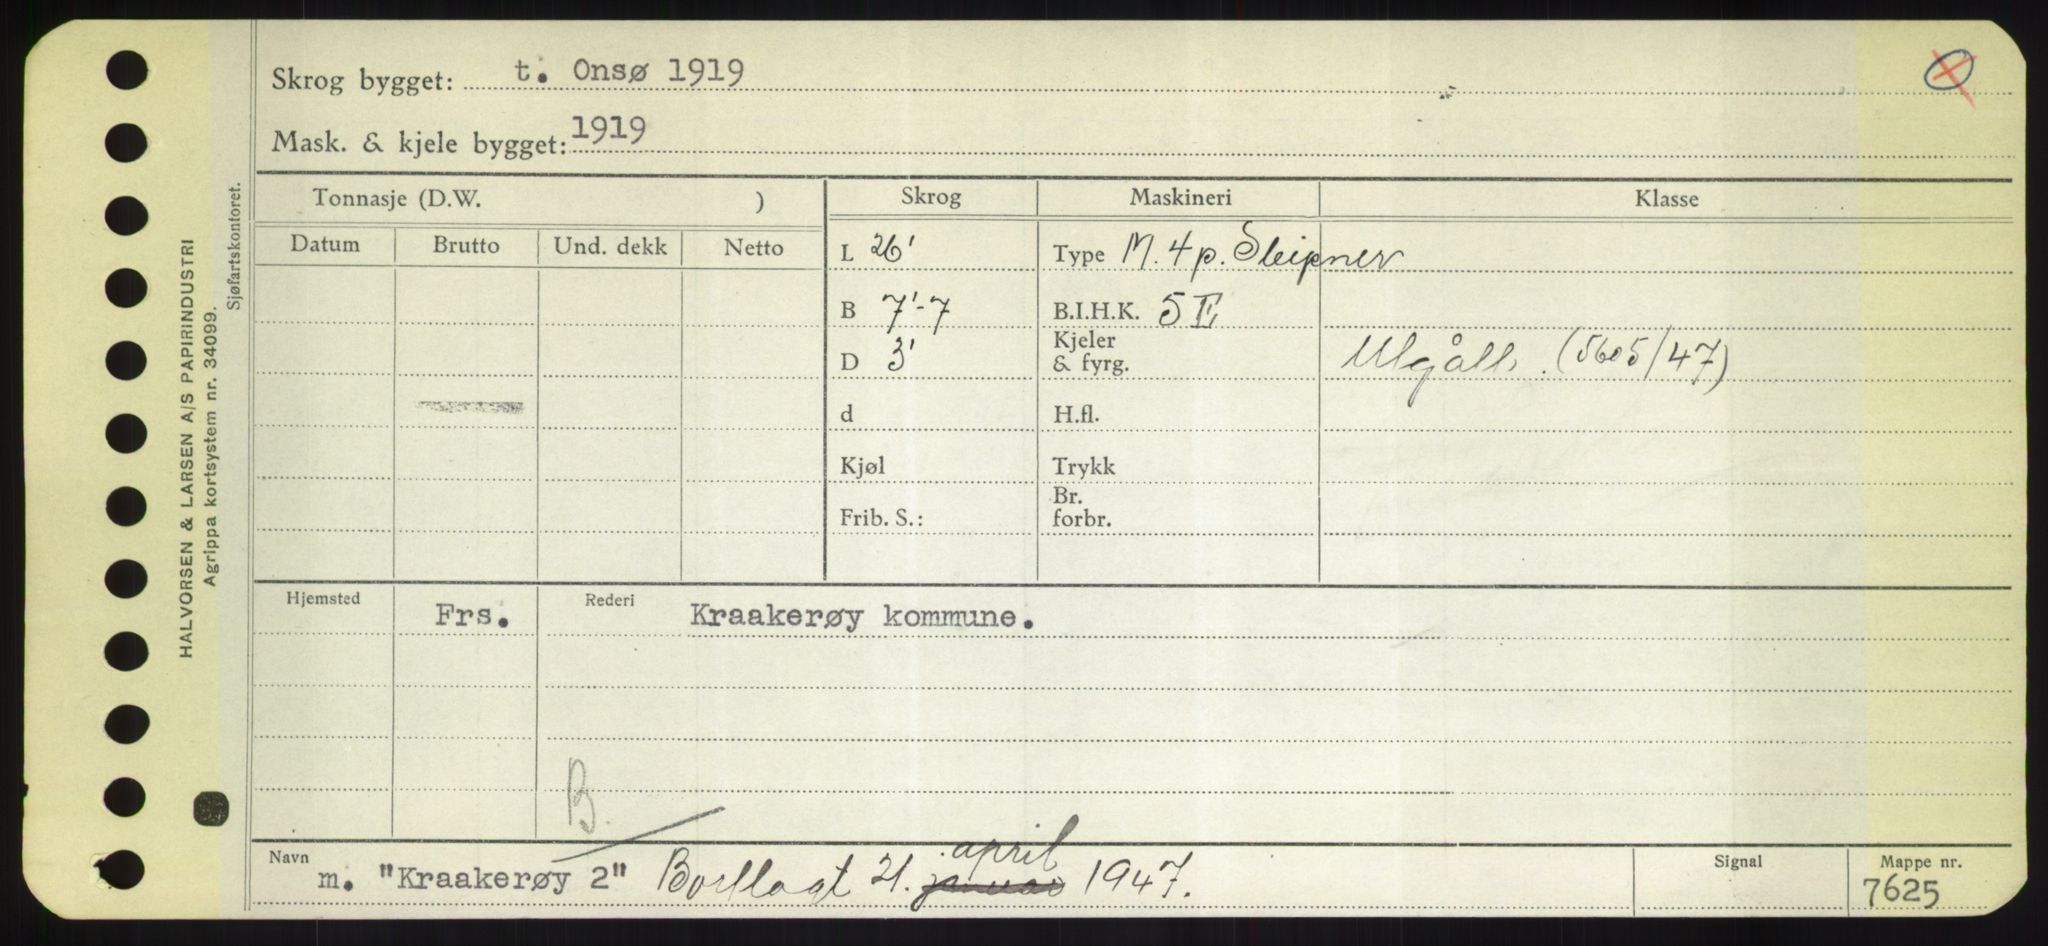 Skrog bygget: t. Onsø 1919
Mask. & kjele bygget: 1919
Tonnasje (D.W. )
Skrog
Maskineri
Klasse
Datum
Brutto
Und. dekk
Netto
L 26'
Type M. 4 p. Sleipner
B 7'-7
B.I.H.K. 5 E
D 3'
Kjeler
& fyrg.
(5605/47)
d
H.fl.
Kjøl
Trykk
Frib. S.:
Br.
forbr.
Hjemsted
Frs.
Rederi
Kraakerøy kommune.
B.
Navn
m. "Kraakerøy 2" Borllagt 21. januar april 1947.
Signal
Mappe nr.
7625
HALVORSEN & LARSEN A/S PAPIRINDUSTRI
Agrippa kortsystem nr. 34099.
Sjøfartskontoret.